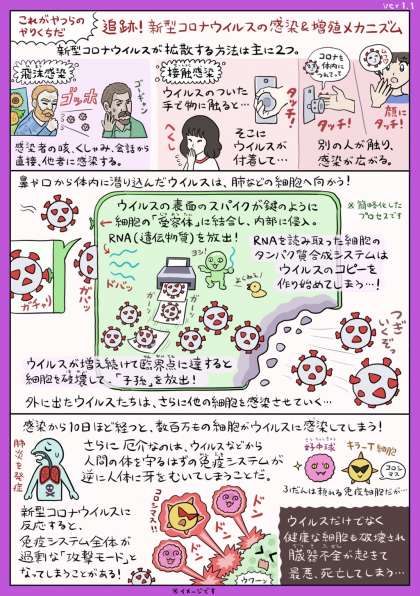 ver1.1
これがやつらの
やりくちだ
追跡！新型コロナウイルスの感染&増殖メカニズム
新型コロナウイルスが拡散する方法は主に2つ。
飛沫感染
ゴッホ
ゴーギャン
感染者の咳、くしゃみ、会話から
直接、他者に感染する。
接触感染
ウイルスのついた
手で物に触ると…
タッチ！
へくし
そこに
ウイルスが
付着して…
コロナを
体内に
つれてって
タッチ！
顔に
タッチ！
別の人が触り、
感染が広がる。
鼻や口から体内に潜り込んだウイルスは、肺などの細胞へ向かう！
※簡略化した
プロセスです
ウイルスの表面のスパイクが鍵のように
細胞の「受容体」に結合し、内部に侵入。
RNA(遺伝物質)を放出！
RNAを読み取った細胞の
タンパク質合成システムは
ウイルスのコピーを
作り始めてしまう…！
ヨシ！
ドバッ
ガチャリ
ガバッ
ガーッ
つぎ
いくぞっ
ウイルスが増え続けて臨界点に達すると
細胞を破壊して、「子孫」を放出！
外に出たウイルスたちは、さらに他の細胞を感染させていく…
感染から10日ほど経つと、数百万もの細胞がウイルスに感染してしまう！
肺炎を発症
さらに厄介なのは、ウイルスなどから
人間の体を守るはずの免疫システムが
逆に人体に牙をむいてしまうことだ。
好中球
キラーT細胞
コロシマス
ふだんは頼れる免疫細胞だが…
新型コロナウイルスに
反応すると、
免疫システム全体が
過剰な「攻撃モード」と
なってしまうことがある！
コロシマス！！
ドン
ドン
ドン
ウワーッ
ウイルスだけでなく
健康な細胞も破壊され
臓器不全が起きて
最悪、死亡してしまう…
※イメージです